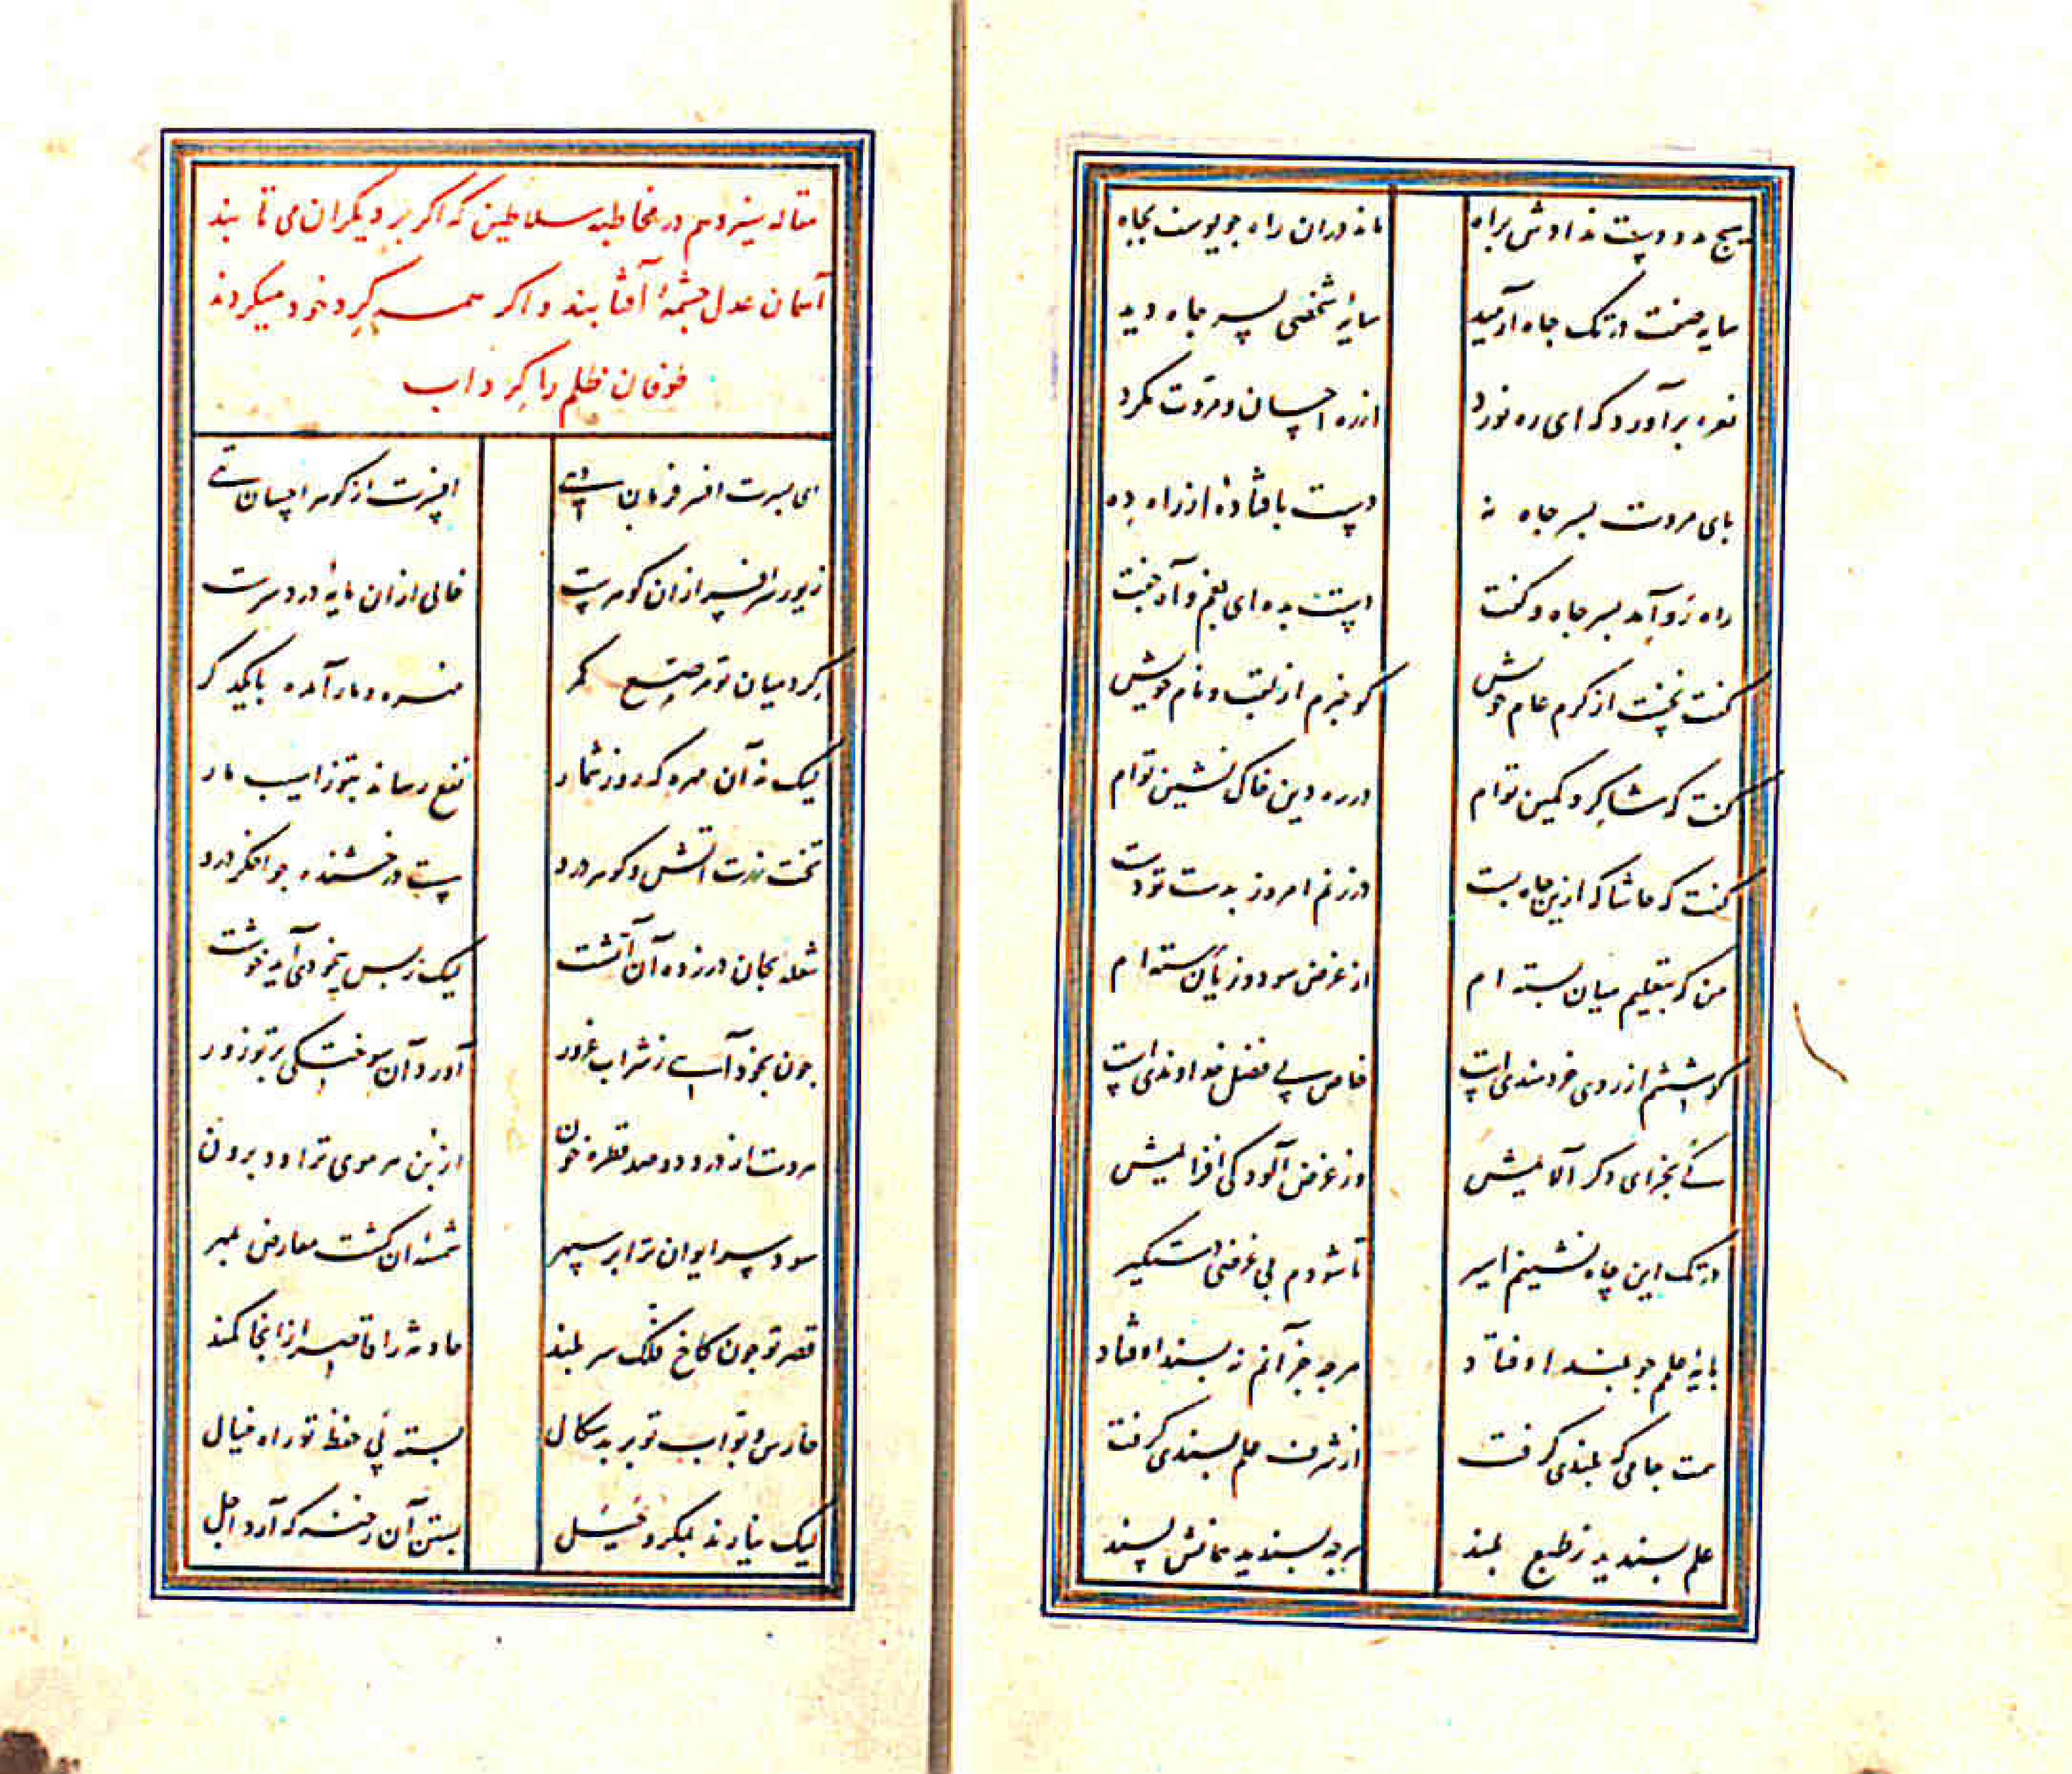 هیچ مدد دست ندادش براه
ماند دران راه جو یوسف بجاه
سایه صفت در تک جاه آرمید
سایهٔ شخصی بسر جاه دید
نعره برآورد که ای ره نورد
ازره احسان و مروت مکرد
بای مروت بسر جاه نه
دست بافتادهٔ از راه ده
راه رو آمد بسر جاه و کفت
دست بده ای بغم و آه جفت
کفت نخست از کرم عام خویش
کو خبرم از لقب و نام خویش
کفت که شاکرد کمین توام
در ره دین خاک نشین توام
کفت که حاشا که ازین جاه بست
درزنم امروز بدست تو دست
من که بتعلیم میان بسته ام
از غرض سود و زیان رسته ام
کوششم از روی خردمندی است
خاص بی فضل خداوندی است
کی بجزای دکر آلایمش
وز غرض آلودکی افزایمش
در تک این چاه نشینم اسیر
تا شودم بی غرضی دستکیر
بایهٔ علمم جو بلند اوفتاد
هرجه جز آنم نه بسند اوفتاد
همت جامی که بلندی کرفت
از شرف علم بسندی کرفت
علم بسندید ز طبع بلند
هرجه بسندید همانش بسند
مقاله سیزدهم در مخاطبه سلاطین که اکر بر دیکران می تابند
آسمان عدل جشمهٔ آفتابند و اکر همه کرد خود میکردند
طوفان ظلم را کرداب
ای بسرت افسر فرمان دهی
افسرت از کوهر احسان تهی
زیور سر افسر ازان کوهرست
خالی ازان مایهٔ درد سرت
کرد میان تو مرصع کمر
مهره و مار آمده بایکدکر
لیک نه آن مهره که روز شمار
نفع رساند بتو زاسیب مار
تخت زرت آتش و کوهر درو
هست درخشنده جو اخکر درو
شعله بجان درزده آن آتشت
لیک ز بس بیخودی آید خوشت
جون بخود آیی ز شراب غرور
آورد آن سوختکی بر تو زور
هردمت از درد دو صد قطره خون
از بن هر موی تراود برون
سود سر ایوان ترا بر سپهر
شمسهٔ آن کشت معارض بمهر
قصر تو جون کاخ فلک سر بلند
حادثه را قاصر ازانجا کمند
حارس و بواب تو بر بدسکال
بسته بی حفظ تو راه خیال
لیک نیارند بمکر و حیل
بستن آن رخنه که آرد اجل